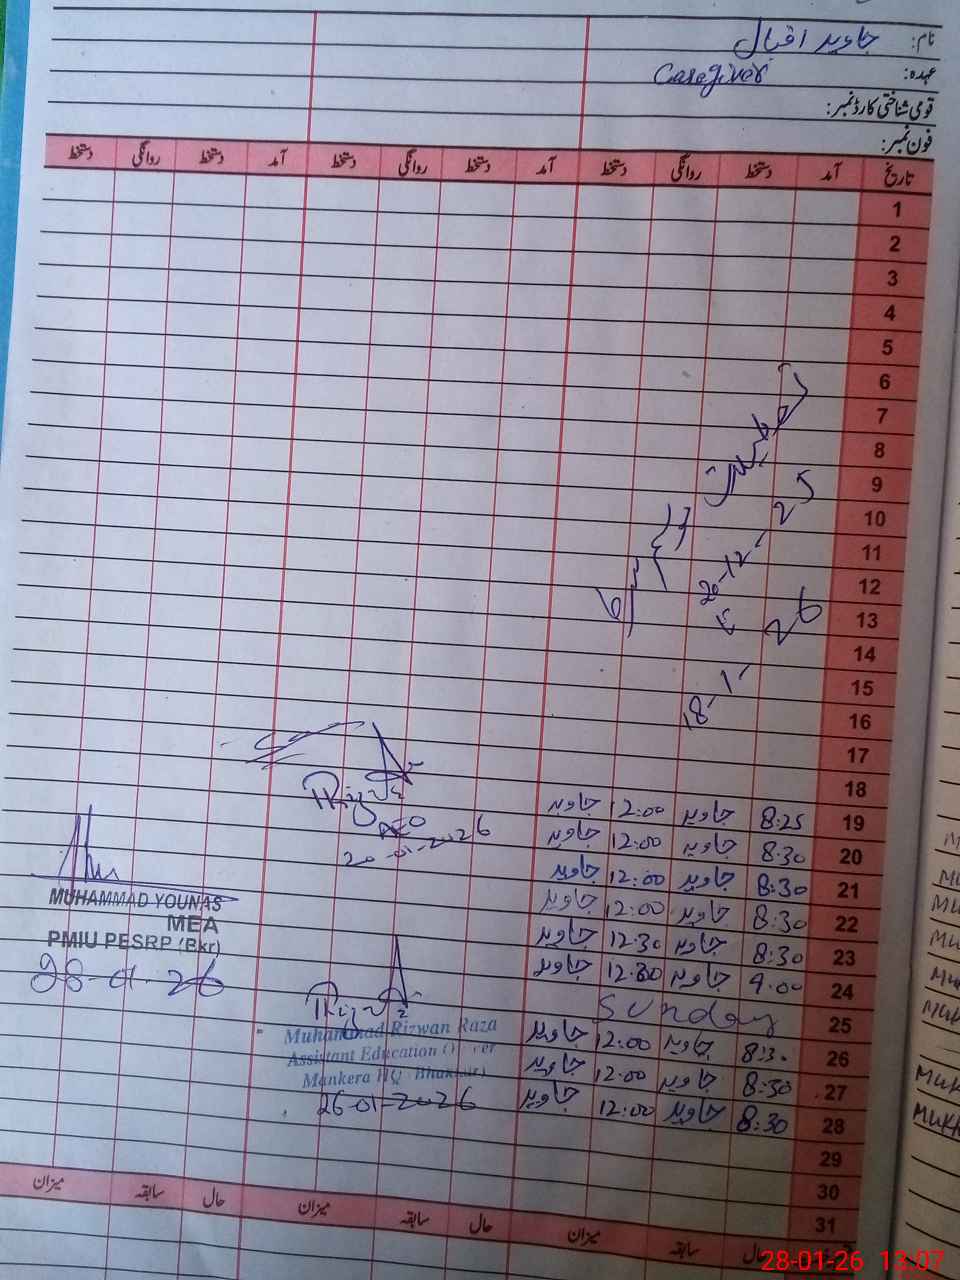 نام: جاوید اقبال
عہدہ: Caregiver
قومی شناختی کارڈ نمبر:
فون نمبر:
تاریخ آمد دستخط روانگی دستخط آمد دستخط روانگی دستخط آمد دستخط روانگی دستخط
1
2
3
4
5
6
7
8
9
10
11
12
13
14
15
16
17
18
19 8:25 جاوید 12:00 جاوید
20 8:30 جاوید 12:00 جاوید
21 8:30 جاوید 12:00 جاوید
22 8:30 جاوید 12:00 جاوید
23 8:30 جاوید 12:30 جاوید
24 9:00 جاوید 12:30 جاوید
25 Sunday
26 8:30 جاوید 12:00 جاوید
27 8:30 جاوید 12:00 جاوید
28 8:30 جاوید 12:00 جاوید
29
30
31
موسم سرما
20-12-25
18-1-26
AEO
20-01-2026
MUHAMMAD YOUNAS
MEA
PMIU PESRP (Bkr)
28-01-26
Muhammad Rizwan Raza
Assistant Education Officer
Mankera HQ (Bhakkar)
26-01-2026
حال سابقہ میزان حال سابقہ میزان حال سابقہ میزان
28-01-26 13:07